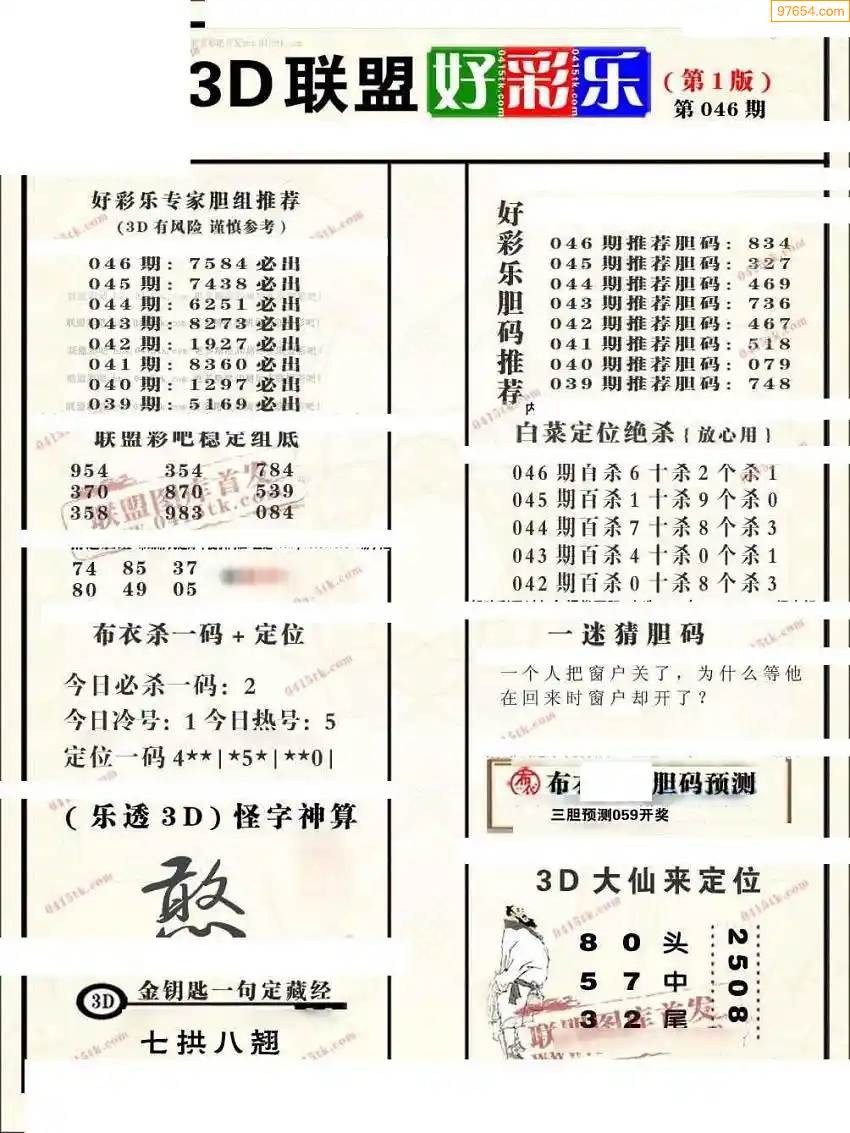 97654.com
3D联盟 好彩乐 (第1版)
第046期
好彩乐专家胆组推荐
(3D有风险 谨慎参考)
046期:7584必出
045期:7438必出
044期:6251必出
043期:8273必出
042期:1927必出
041期:8360必出
040期:1297必出
039期:5169必出
联盟彩吧稳定组底
954 354 784
370 870 539
358 983 084
联盟图库首发
74 85 37
80 49 05
布衣杀一码+定位
今日必杀一码:2
今日冷号:1今日热号:5
定位一码4**|*5*|**0|
(乐透3D)怪字神算
憨
3D 金钥匙一句定藏经
七拱八翘
好彩乐胆码推荐
046期推荐胆码:834
045期推荐胆码:327
044期推荐胆码:469
043期推荐胆码:736
042期推荐胆码:467
041期推荐胆码:518
040期推荐胆码:079
039期推荐胆码:748
白菜定位绝杀{放心用}
046期百杀6十杀2个杀1
045期百杀1十杀9个杀0
044期百杀7十杀8个杀3
043期百杀4十杀0个杀1
042期百杀0十杀8个杀3
一迷猜胆码
一个人把窗户关了,为什么等他
在回来时窗户却开了?
布衣 胆码预测
三胆预测059开奖
3D大仙来定位
8 0 头
5 7 中
3 2 尾
2508
联盟图库首发
0415tk.com